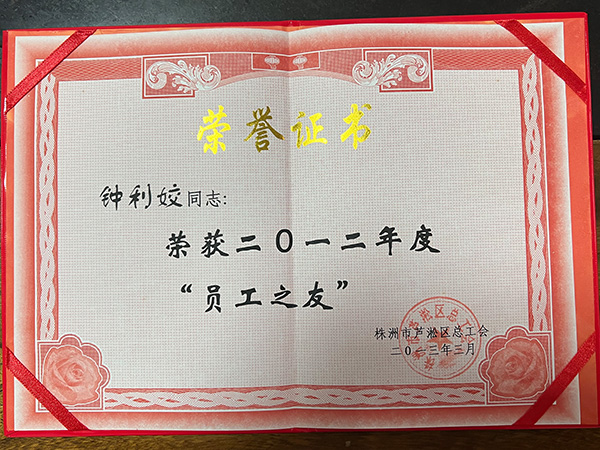 荣誉证书
钟利姣同志:
荣获二〇一二年度
“员工之友”
株洲市芦淞区总工会
二〇一三年三月
株洲市芦淞区总工会